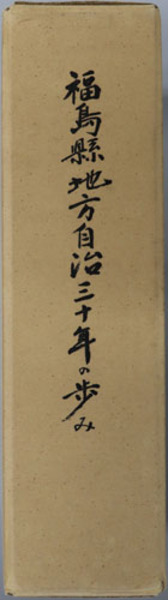 福島縣地方自治三十年の歩み